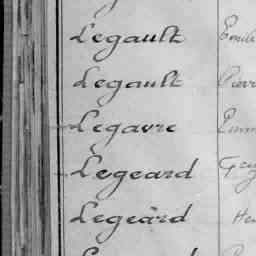 Legault Emile
Legault Pierre
Legavre Emm
Legeard
Legeard He